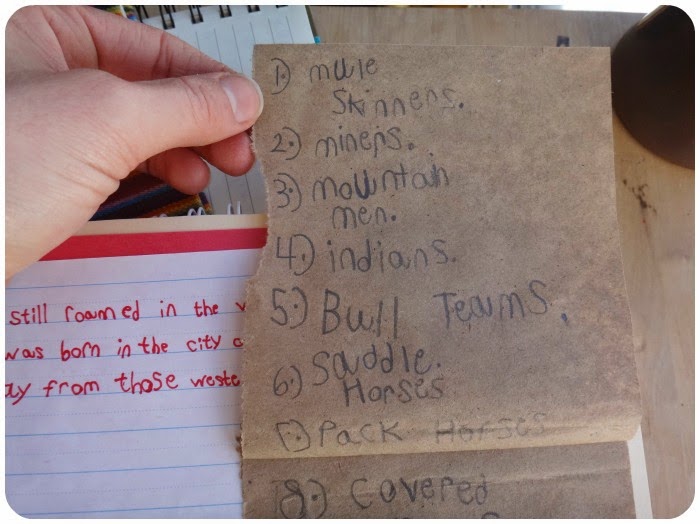 1.) mule
Skinners.
2.) miners.
3.) mountain
men.
4.) indians.
5.) Bull Teams.
6.) Sauddle.
Horses
7.) Pack Horses
8.) Covered
still roamed in the
was born in the city
from those weste